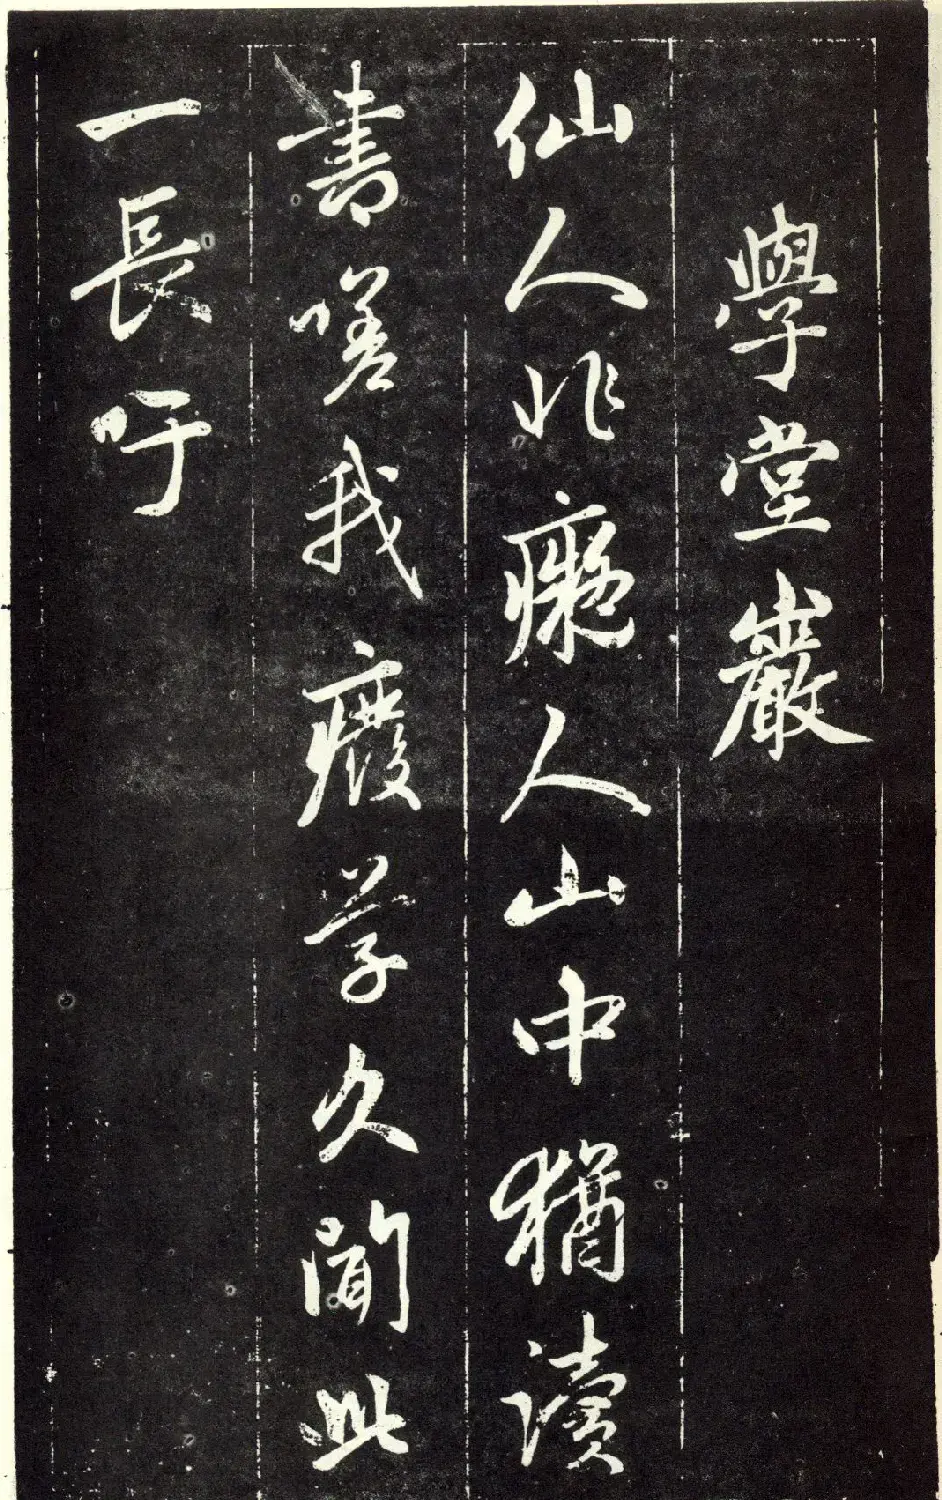 學堂巖
仙人非癡人山中猶讀
書嗟我癈學久聞此
一長吁